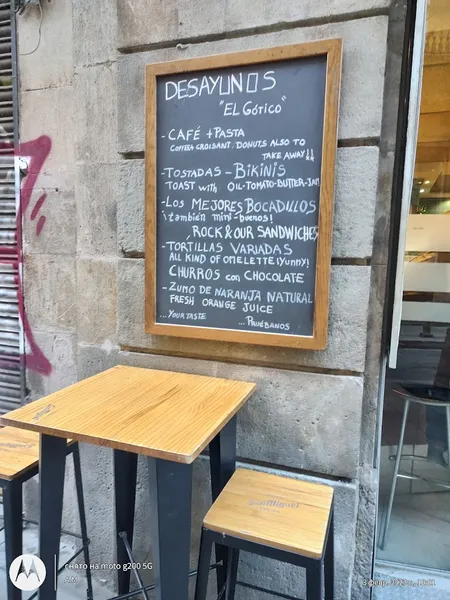 DESAYUNOS
"EL GÓTICO"
- CAFÉ + PASTA
COFFEE & CROISANT, DONUTS ALSO TO
TAKE AWAY!!
- TOSTADAS - BIKINIS
TOAST WITH OIL-TOMATO-BUTTER-JAM
- LOS MEJORES BOCADILLOS
¡también mini-buenos!
ROCK & OUR SANDWICHES
- TORTILLAS VARIADAS
ALL KIND OF OMELETTE ¡YUNNY!
CHURROS con CHOCOLATE
- ZUMO DE NARANJA NATURAL
FRESH ORANGE JUICE
... YOUR TASTE ... PRUÉBANOS
снято на moto g200 5G
AM